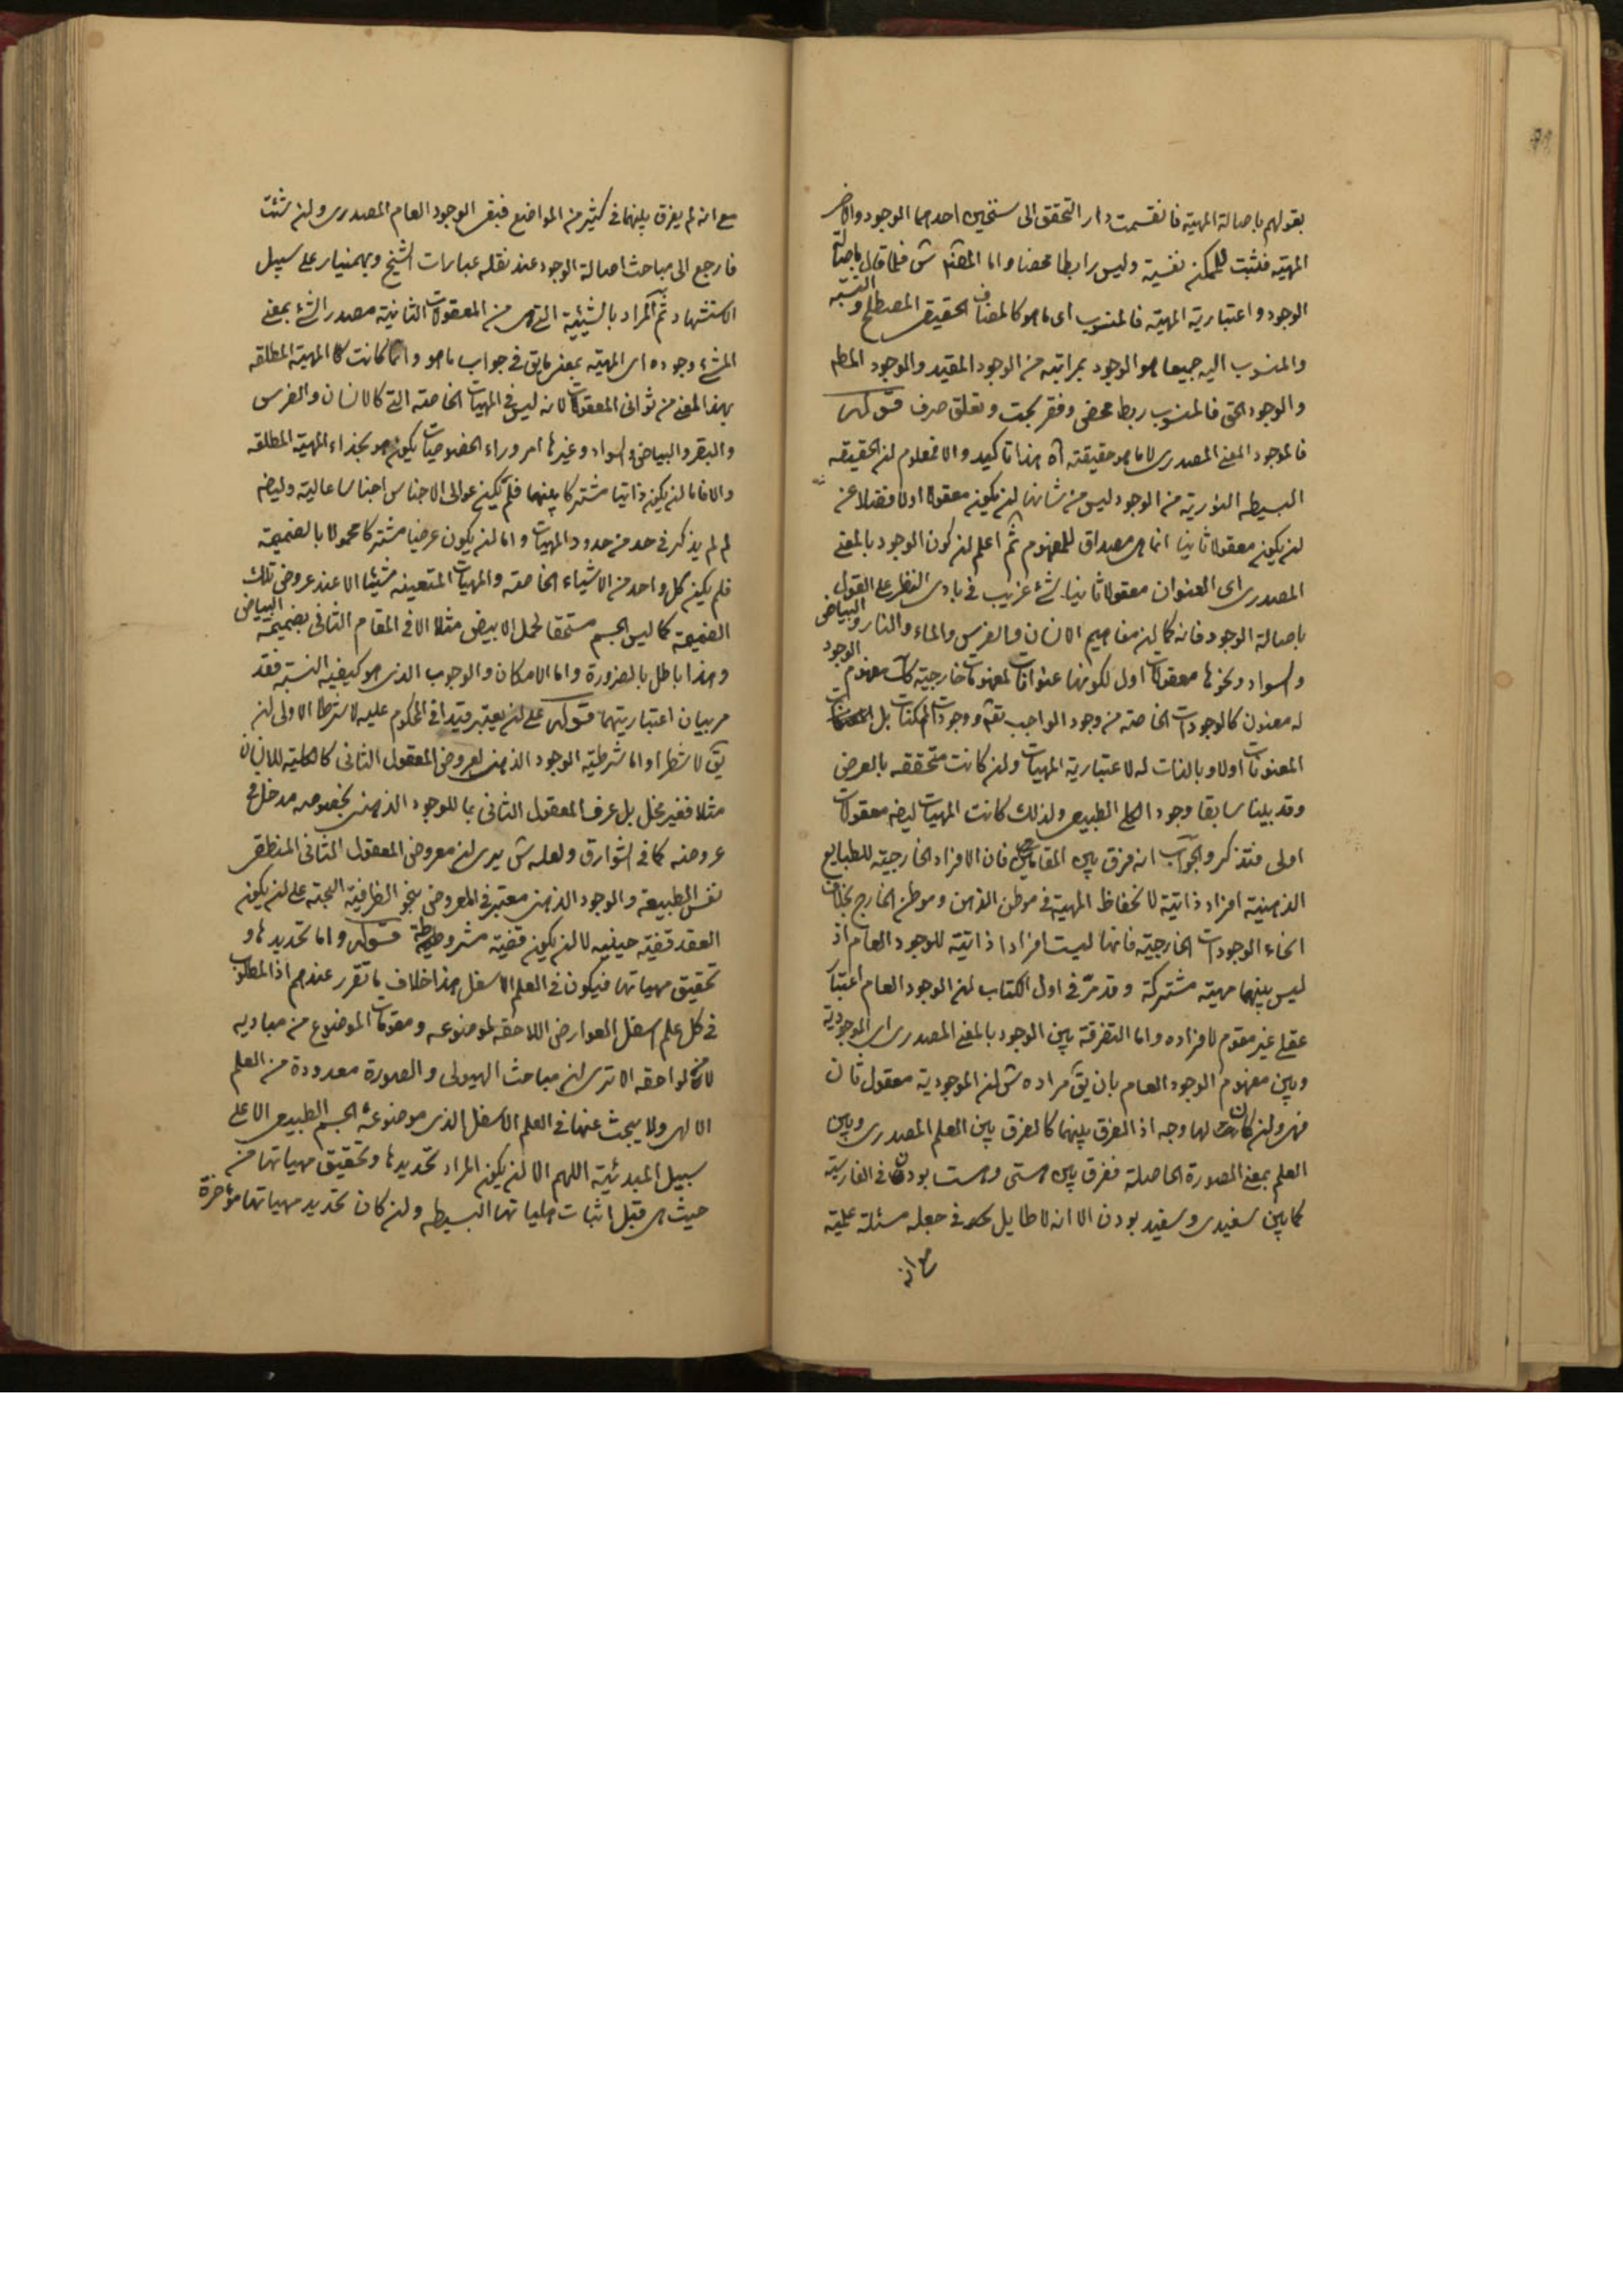 بقولهم باصالة المهية فانقسمت دار التحقق الى سنخين احدهما الوجود والاخر
المهية فثبت للممكن نفسية وليس رابطا محضا واما المص ش فلما قال باصالة
الوجود واعتبارية المهية فالمنسوب اى ما هو كالمضاف الحقيقى المصطلح والنسبة
والمنسوب اليه جميعا هو الوجود بمراتبه من الوجود المقيد والوجود المط
والوجود الحق فالمنسوب ربط محض وفقر بحت وتعلق صرف قوله
فالوجود المعنى المصدرى لا ما هو حقيقته اه هذا تاكيد والا فمعلوم ان الحقيقة
البسيطه النورية من الوجود ليس من شانها ان يكون معقولا اولا فضلا عن
ان يكون معقولا ثانيا انما هى مصداق للمفهوم ثم اعلم ان كون الوجود بالمعنى
المصدرى اى العنوان معقولا ثانيا شئ غريب فى بادى النظر على القول
باصالة الوجود فانه كما ان مفاهيم الانسان والفرس والماء والنار والبياض
والسواد ونحوها معقولات اول لكونها عنوانات لمعنونات خارجية كك مفهوم الوجود
له معنون كالوجودات الخاصة من وجود الواجب تعه ووجودات الممكنات بل
المعنونات اولا وبالذات له لاعتبارية المهيات وان كانت متحققه بالعرض
وقد بينا سابقا وجود الكلى الطبيعى ولذلك كانت المهيات ايضه معقولات
اولى فتذكر والجواب انه فرق بين المقامين فان الافراد الخارجية للطبايع
الذهنية افراد ذاتية لانحفاظ المهية فى موطن الذهن وموطن الخارج بخلاف
انحاء الوجودات الخارجية فانها ليست افرادا ذاتية للوجود العام اذ
ليس بينهما مهية مشتركة وقد مر فى اول الكتاب ان الوجود العام اعتبار
عقلى غير مقوم لافراده واما التفرقة بين الوجود بالمعنى المصدرى اى الموجودية
وبين مفهوم الوجود العام بان يق مراده ش ان الموجودية معقول ثان
فهى وان كان لها وجه اذ الفرق بينهما كالفرق بين العلم المصدرى وبين
العلم بمعنى الصورة الحاصلة ففرق بين هستى وهست بودن فى الفارسية
كما بين سفيدى وسفيد بودن الا انه لا طايل فى جعله مسئلة علمية
مع انه
مع انه لم يفرق بينهما فى كثير من المواضع فبقى الوجود العام المصدرى وان شئت
فارجع الى مباحث اصالة الوجود عند نقله عبارات الشيخ وبهمنيار على سبيل
الاستشهاد ثم المراد بالشيئية التى هى من المعقولات الثانية مصدر الشئ بمعنى
المشئ وجوده اى المهية بمعنى ما يق فى جواب ما هو وانما كانت المهية المطلقه
بهذا المعنى من ثوانى المعقولات لانه ليس فى المهيات الخاصة التى كالانسان والفرس
والبقر والبياض والسواد وغيرها امر وراء الخصوصيات يكون هو بحذاء المهية المطلقه
والا فاما ان يكون ذاتيا مشتركا بينهما فلم تكن عوالى الاجناس اجناسا عالية وايضه
لم لم يذكر فى حد من حدود المهيات واما ان يكون عرضيا مشتركا محمولا بالضميمة
فلم يكن كل واحد من الاشياء الخاصة والمهيات المتعينه شيئا الا عند عروض تلك
الضميمة كما ليس الجسم مستحقا لحمل الابيض مثلا الا فى المقام الثانى بضميمة البياض
وهذا باطل بالضرورة واما الامكان والوجوب الذى هو كيفية النسبة فقد
مر بيان اعتباريتهما قوله على ان يعتبر قيدا فى المحكوم عليه لا شرطا الاولى ان
يق لا شطرا واما شرطية الوجود الذهنى لعروض المعقول الثانى كالكلية للانسان
مثلا فغير مخل بل عرف المعقول الثانى بما للوجود الذهنى بخصوصه مدخل فى
عروضه كما فى الشوارق ولعله ش يرى ان معروض المعقول الثانى المنطقى
نفس الطبيعة والوجود الذهنى معتبر فى المعروض بنحو الظرفية البحتة على ان يكون
العقد قضية حينية لا ان يكون قضية مشروطة قوله واما تحديدها و
تحقيق مهياتها فيكون فى العلم الاسفل هذا خلاف ما تقرر عندهم اذ المطلوب
فى كل علم اسفل العوارض اللاحقه لموضوعه ومقومات الموضوع من مباديه
لا من لواحقه الا ترى ان مباحث الهيولى والصورة معدودة من العلم
الالهى ولا يبحث عنها فى العلم الاسفل الذى موضوعه الجسم الطبيعى الا على
سبيل المبدئية اللهم الا ان يكون المراد تحديدها وتحقيق مهياتها من
حيث هى قبل اثبات هلياتها البسيطه وان كان تحديد مهياتها مؤخرة